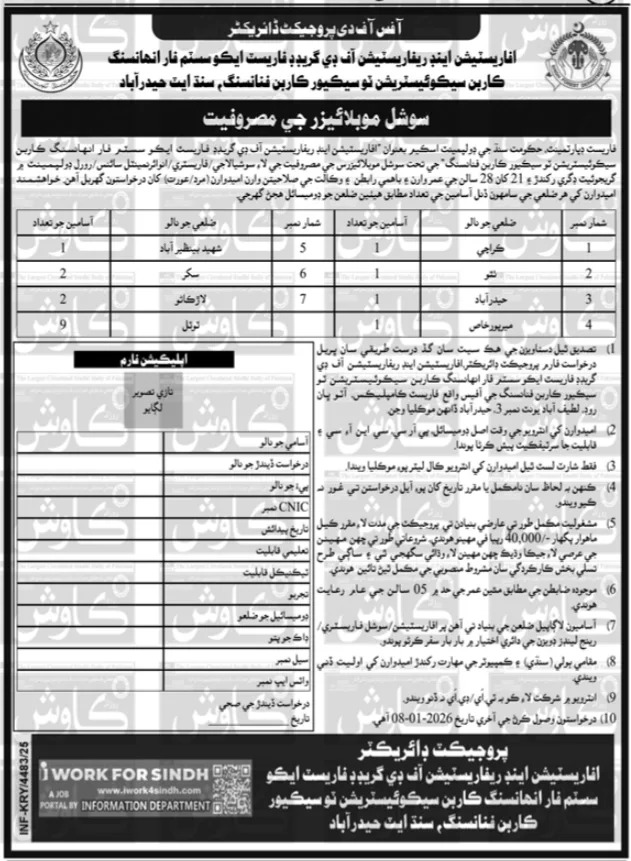 آفس آف دي پروجيڪٽ ڊائريڪٽر
افاريسٽيشن اينڊ ريفاريسٽيشن آف ڊي گريڊڊ فاريسٽ ايڪو سسٽم فار انهانسنگ
ڪاربن سيڪوئيسٽريشن ٽو سيڪيور ڪاربن فنانسنگ، سنڌ ايٽ حيدرآباد
سوشل موبلائيزر جي مصروفيت
فاريسٽ ڊپارٽمينٽ، حڪومت سنڌ جي ڊولپمينٽ اسڪيم بعنوان "افاريسٽيشن اينڊ ريفاريسٽيشن آف ڊي گريڊڊ فاريسٽ ايڪو سسٽم فار انهانسنگ ڪاربن
سيڪوئيسٽريشن ٽو سيڪيور ڪاربن فنانسنگ" جي تحت سوشل موبلائيزرس جي مصروفيت جي لاءِ سوشيالاجي/فاريسٽري/انوائرنمينٽل سائنس/رورل ڊولپمينٽ ۾
گريجوئيٽ ڊگري رکندڙ ۽ 21 کان 28 سالن جي عمر وارن ۽ باهمي رابطن ۽ وڪالت جي صلاحيتن وارن اميدوارن (مرد/عورت) کان درخواستون گهربل آهن. خواهشمند
اميدوارن کي هر ضلعي جي سامهون ڏنل آسامين جي تعداد مطابق هيٺين ضلعن جو ڊوميسائل هجڻ گهرجي.
شمار نمبر | ضلعي جو نالو | آسامين جو تعداد | شمار نمبر | ضلعي جو نالو | آسامين جو تعداد
1 | ڪراچي | 1 | 5 | شهيد بينظيرآباد | 1
2 | ٺٽو | 1 | 6 | سکر | 2
3 | حيدرآباد | 1 | 7 | لاڙڪاڻو | 2
4 | ميرپورخاص | 1 | ٽوٽل | 9
1) تصديق ٿيل دستاويزن جي هڪ سيٽ سان گڏ درست طريقي سان ڀريل
درخواست فارم پروجيڪٽ ڊائريڪٽر، افاريسٽيشن اينڊ ريفاريسٽيشن آف ڊي
گريڊڊ فاريسٽ ايڪو سسٽم فار انهانسنگ ڪاربن سيڪوئيسٽريشن ٽو
سيڪيور ڪاربن فنانسنگ جي آفيس واقع فاريسٽ ڪامپليڪس، آٽو ڀان
روڊ، لطيف آباد يونٽ نمبر 3، حيدرآباد ڏانهن موڪليا وڃن.
2) اميدوارن کي انٽرويو جي وقت اصل ڊوميسائل، پي آر سي، سي اين آءِ سي ۽
قابليت جا سرٽيفڪيٽ پيش ڪرڻا پوندا.
3) فقط شارٽ لسٽ ٿيل اميدوارن کي انٽرويو ڪال ليٽر پوءِ موڪليا ويندا.
4) ڪنهن به لحاظ سان نامڪمل يا مقرر تاريخ کان پوءِ آيل درخواستن تي غور نه
ڪيو ويندو.
5) مشغوليت مڪمل طور تي عارضي بنيادن تي پروجيڪٽ جي مدت لاءِ مقرر ڪيل
ماهوار پگهار 40,000/- رپيا في مهينو هوندي. شروعاتي طور تي ڇهن مهينن
جي عرصي لاءِ، جيڪا وڌيڪ ڇهن مهينن لاءِ وڌائي سگهجي ٿي ۽ ساڳي طرح
تسلي بخش ڪارڪردگي سان مشروط منصوبي جي مڪمل ٿيڻ تائين هوندي.
6) موجوده ضابطن جي مطابق مٿين عمر جي حد ۾ 05 سالن جي عام رعايت
هوندي.
7) آساميون لاڳاپيل ضلعن جي بنياد تي آهن پر افاريسٽيشن/سوشل فاريسٽري/
رينج لينڊز ڊويزن جي دائري اختيار ۾ بار بار سفر ڪرڻو پوندو.
8) مقامي ٻولي (سنڌي) ۽ ڪمپيوٽر جي مهارت رکندڙ اميدوارن کي اوليت ڏني
ويندي.
9) انٽرويو ۾ شرڪت لاءِ ڪو به ٽي اي/ڊي اي نه ڏنو ويندو.
10) درخواستون وصول ڪرڻ جي آخري تاريخ 08-01-2026 آهي.
ايپليڪيشن فارم
تازي تصوير
لڳايو
آسامي جو نالو
درخواست ڏيندڙ جو نالو
پيءُ جو نالو
CNIC نمبر
تاريخ پيدائش
تعليمي قابليت
ٽيڪنيڪل قابليت
تجربو
ڊوميسائيل جو ضلعو
ڊاڪ جو پتو
سيل نمبر
واٽس ايپ نمبر
درخواست ڏيندڙ جي صحي
تاريخ
پروجيڪٽ ڊائريڪٽر
افاريسٽيشن اينڊ ريفاريسٽيشن آف ڊي گريڊڊ فاريسٽ ايڪو
سسٽم فار انهانسنگ ڪاربن سيڪوئيسٽريشن ٽو سيڪيور
ڪاربن فنانسنگ، سنڌ ايٽ حيدرآباد
i WORK FOR SINDH
www.iwork4sindh.com
A JOB
PORTAL BY INFORMATION DEPARTMENT
INF-KRY/4483/25
ڪاوش